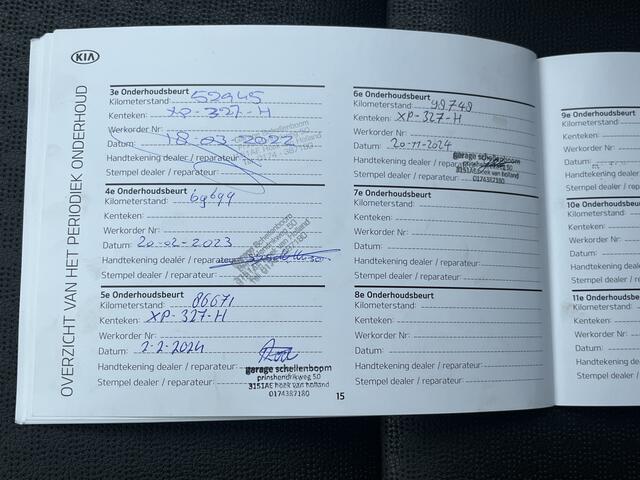 KIA
OVERZICHT VAN HET PERIODIEK ONDERHOUD
3e Onderhoudsbeurt
Kilometerstand: 52945
Kenteken: XP-327-H
Werkorder Nr:
Datum: 18-03-2022
Handtekening dealer / reparateur:
Stempel dealer / reparateur:
4e Onderhoudsbeurt
Kilometerstand: 69699
Kenteken:
Werkorder Nr:
Datum: 20-02-2023
Handtekening dealer / reparateur:
Stempel dealer / reparateur:
garage schellenboom
5e Onderhoudsbeurt
Kilometerstand: 86671
Kenteken: XP-327-H
Werkorder Nr:
Datum: 2-2-2024
Handtekening dealer / reparateur:
Stempel dealer / reparateur:
garage schellenboom
prinshendrikweg 50
3151AE hoek van holland
0174387180
15
6e Onderhoudsbeurt
Kilometerstand:
Kenteken: XP-327-H
Werkorder Nr:
Datum: 20-11-2024
Handtekening dealer / reparateur:
Stempel dealer / reparateur:
garage schellenboom
prinshendrikweg 50
3151AE hoek van holland
0174387180
7e Onderhoudsbeurt
Kilometerstand:
Kenteken:
Werkorder Nr:
Datum:
Handtekening dealer / reparateur:
Stempel dealer / reparateur:
8e Onderhoudsbeurt
Kilometerstand:
Kenteken:
Werkorder Nr:
Datum:
Handtekening dealer / reparateur:
Stempel dealer / reparateur:
9e Onderhoudsb
Kilometerstand:
Kenteken:
Werkorder Nr:
Datum:
Handtekening dea
Stempel dealer / r
10e Onderhoudsb
Kilometerstand:
Kenteken:
Werkorder Nr:
Datum:
Handtekening de
Stempel dealer /
11e Onderhouds
Kilometerstand:
Kenteken:
Werkorder Nr:
Datum:
Handtekening d
Stempel dealer